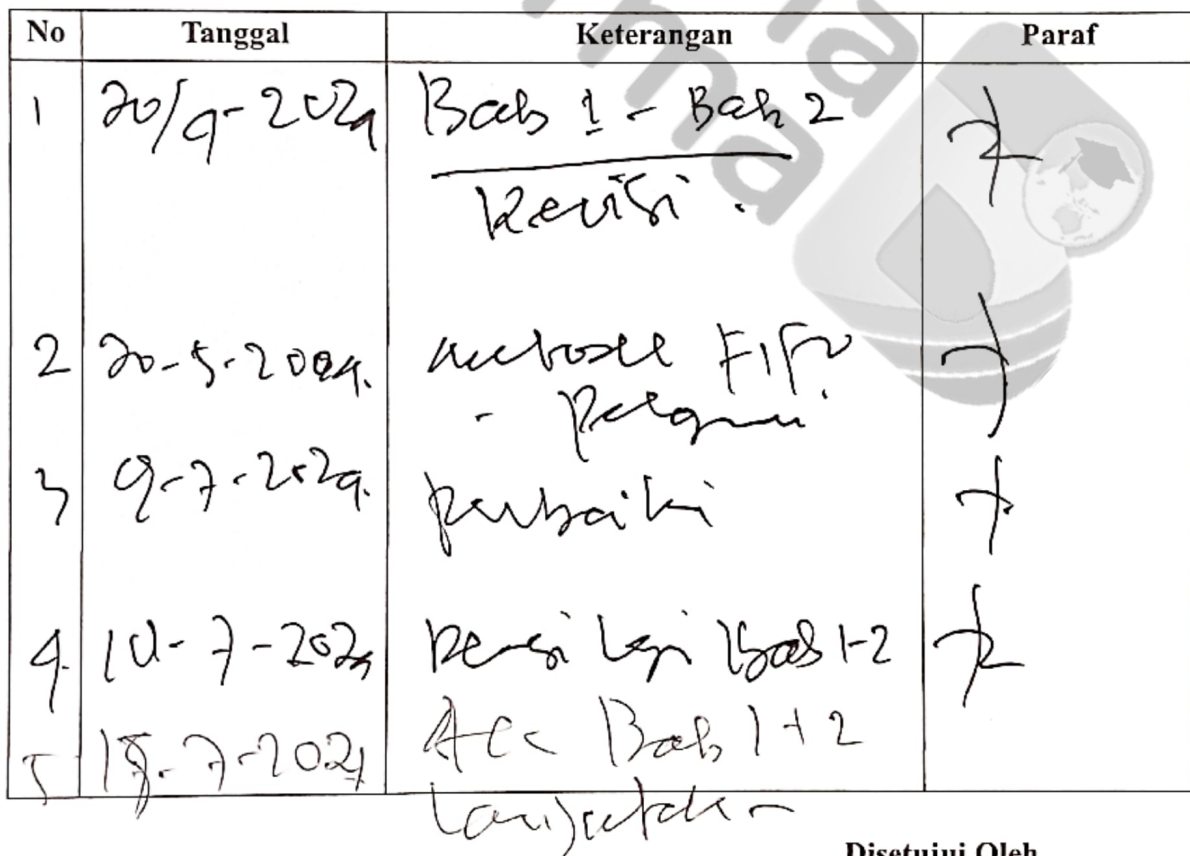 No Tanggal Keterangan Paraf
1 20/9-2024 Bab 1 - Bab 2
Revisi.
2 20-5-2024. metode FIFO
-
3 9-7-2024. perbaiki
4. 10-7-2024 Revisi lagi Bab 1-2
5 18-7-2024 Acc Bab 1+2
Lanjutkan
Disetujui Oleh